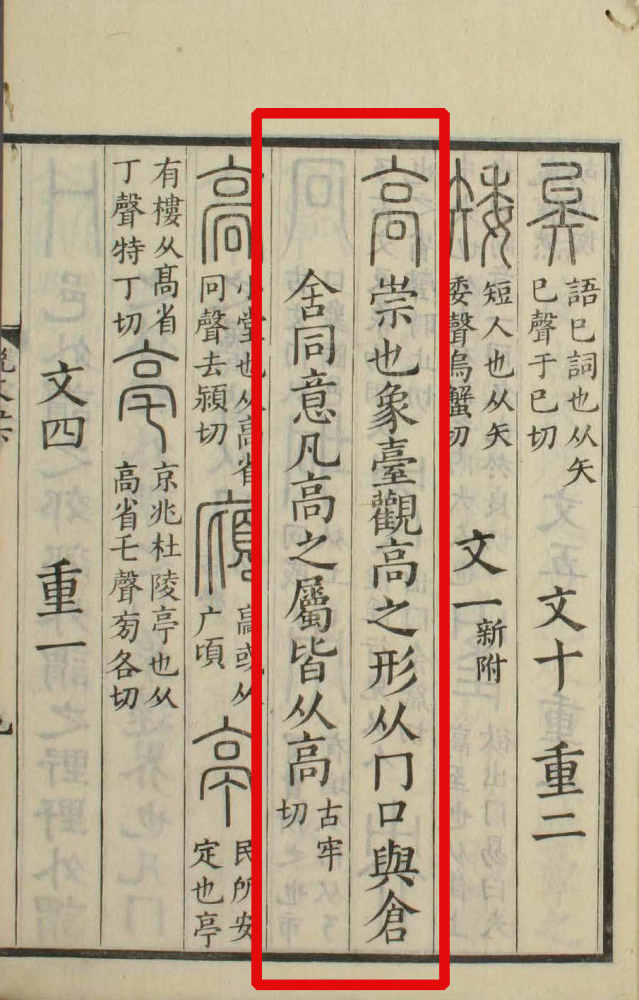 矣語巳詞也从矢巳聲于巳切 文十 重二
矮短人也从矢委聲烏蟹切 文一新附
高崇也象臺觀高之形从冂口與倉
舍同意凡高之屬皆从高古牢切
髙小堂也从高省冋聲去潁切廎高或从广頃亭民所安定也亭
有樓从髙省丁聲特丁切亳京兆杜陵亭也从高省乇聲㫄各切
文四 重一